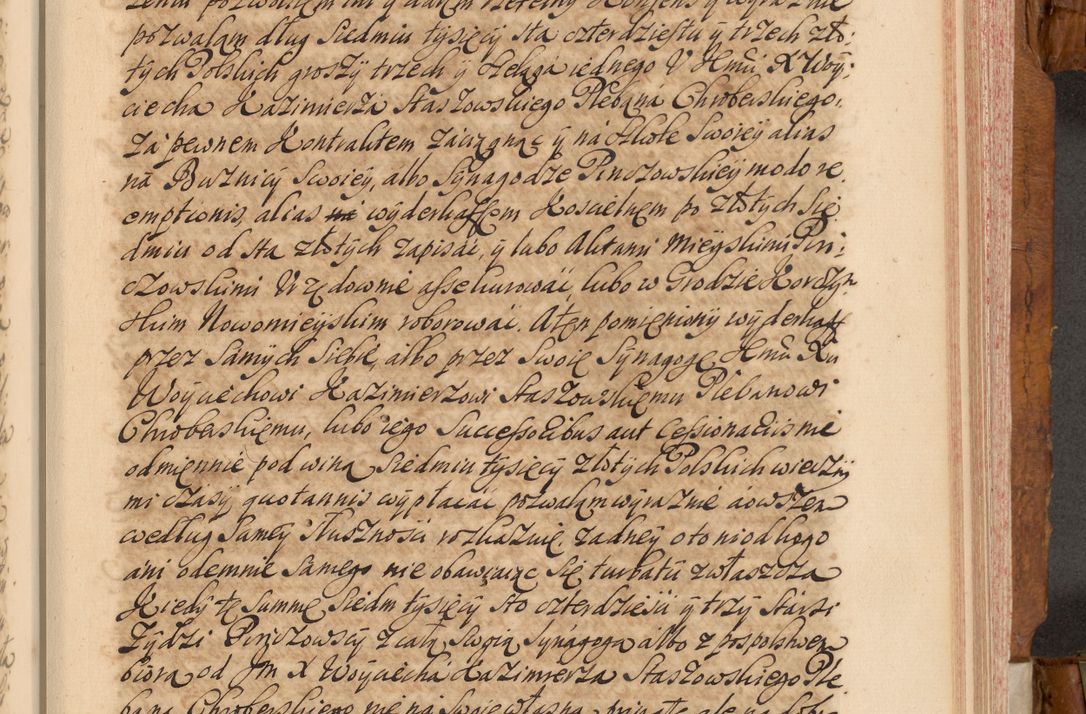 pozwalam dług Siedmiu tysięcy sta czterdziestu y trzech zło:
tych Polskich groszy trzech y szelągá iednego V Jmći X Woy:
ciecha Kazimierza Staszowskiego Plebaná Chroberskiego
zá pewnem Kontraktem záciągnąć y ná Szkole Swoiey alias
ná Bożnicy Swoiey, albo Synagodze Pinczowskiey modo re
emptionis, alias wyderkaffem Koscielnem po złotych Sie
dmiu od sta złotych zapisać, y lubo Aktami Mieyskimi Pin:
czowskimi Vrzędownie assekurować, lubo w Grodzie Korczyn
skim Nowomieyskim roborować. A ten pomieniony wyderkaff
przez Samych Siebie, álbo przez Swoię Synagogę Jmći Xu
Woyciechowi Kazimierzowi Staszowskiemu Plebanowi
Chroberskiemu, lubo iego Successoribus aut Cessionariis nie
odmiennie pod winą Siedmiu tysięcy złotych Polskich wieczny
mi czasy quotannis wypłacać pozwalam wyraznie áowszem
według Samey słusznosci rozkazuię, żadney o to niodkogo
áni odemnie Samego nie obawiaiąc Się turbatii zwłaszcza
Kiedy tę Summę Siedm tysięcy sto czterdziesci y trzy Stársi
Zydzi Pinczowscy z całą Swoią Synagogą álbo z pospolstwem
biorą od Jm X Woyciechá Kazimierza Staszowskiego Ple
bana Chroberskiego nie ná Swoię własną priwatę ale na dobro